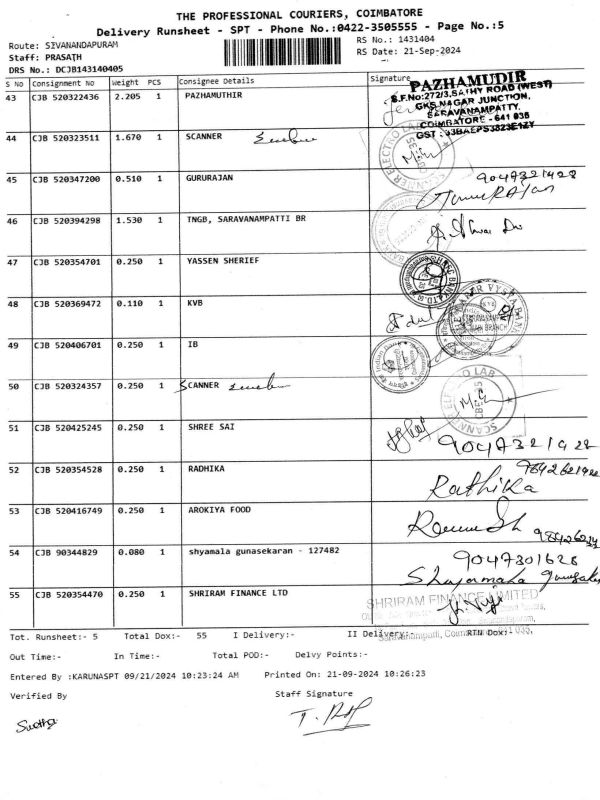 THE PROFESSIONAL COURIERS, COIMBATORE
Delivery Runsheet - SPT - Phone No.:0422-3505555 - Page No.:5
Route: SIVANANDAPURAM
RS No.: 1431404
Staff: PRASATH
RS Date: 21-Sep-2024
DRS No.: DCJB143140405
S No Consignment No Weight PCS Consignee Details Signature
PAZHAMUDIR
S.F.No:272/3,SATHY ROAD (WEST)
GKS NAGAR JUNCTION,
SARAVANAMPATTY,
COIMBATORE - 641 035
43 CJB 520322436 2.205 1 PAZHAMUTHIR
44 CJB 520323511 1.670 1 SCANNER
45 CJB 520347200 0.510 1 GURURAJAN
46 CJB 520394298 1.530 1 TNGB, SARAVANAMPATTI BR
47 CJB 520354701 0.250 1 YASSEN SHERIEF
48 CJB 520369472 0.110 1 KVB
49 CJB 520406701 0.250 1 IB
50 CJB 520324357 0.250 1 SCANNER
51 CJB 520425245 0.250 1 SHREE SAI
52 CJB 520354528 0.250 1 RADHIKA
Rathika
53 CJB 520416749 0.250 1 AROKIYA FOOD
54 CJB 90344829 0.080 1 shyamala gunasekaran - 127482
9047301628
55 CJB 520354470 0.250 1 SHRIRAM FINANCE LTD
SHRIRAM FINANCE LIMITED
Tot. Runsheet:- 5 Total Dox:- 55 I Delivery:- II Delivery:- RTN Dox:-
Out Time:- In Time:- Total POD:- Delvy Points:-
Entered By :KARUNASPT 09/21/2024 10:23:24 AM Printed On: 21-09-2024 10:26:23
Verified By Staff Signature